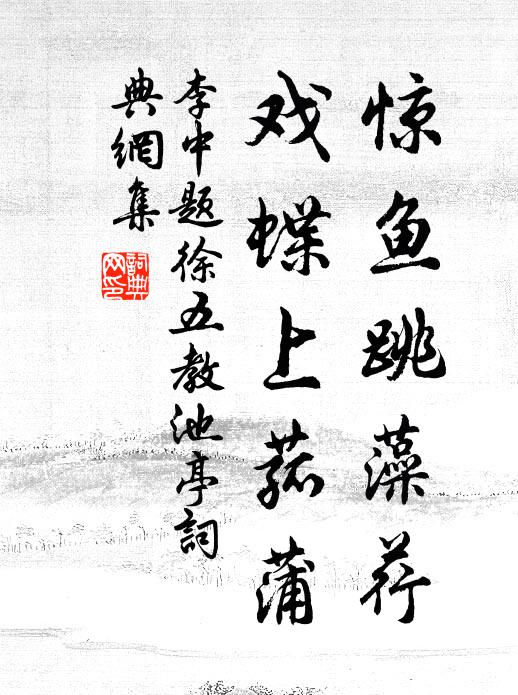 惊鱼跳藻荇
戏蝶上菰蒲
李中题徐五教池亭詞
典網集
詞典网印